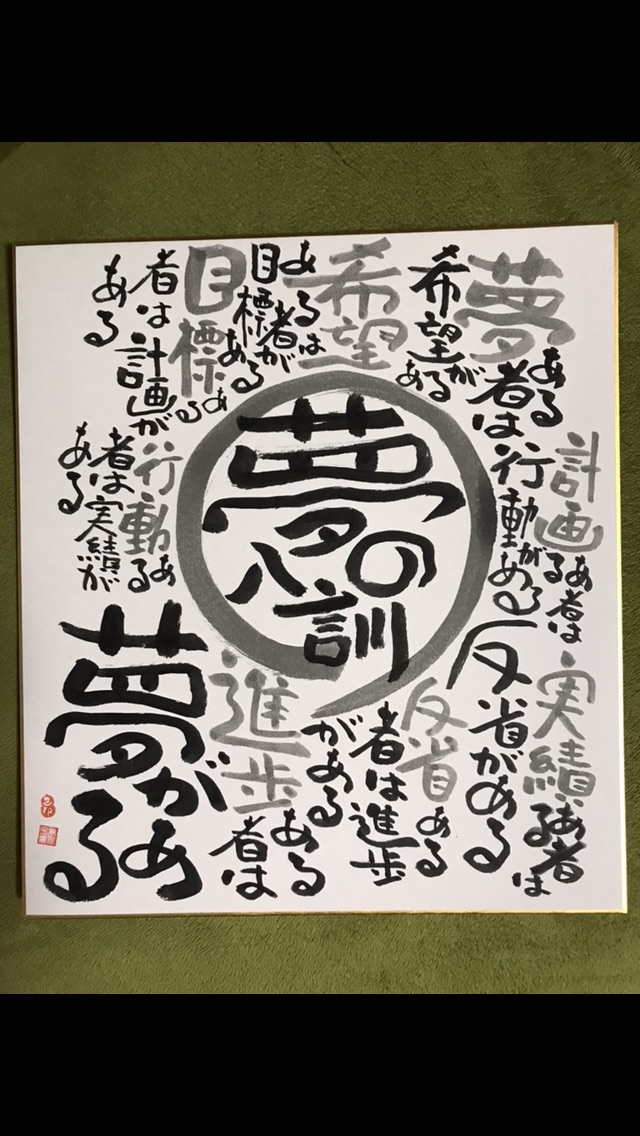 夢の八訓
夢ある者は希望がある
希望あるは者目標がある
目標ある者は計画がある
計画ある者は行動がある
行動ある者は実績がある
実績ある者は反省がある
反省ある者は進歩がある
進歩ある者は夢がある